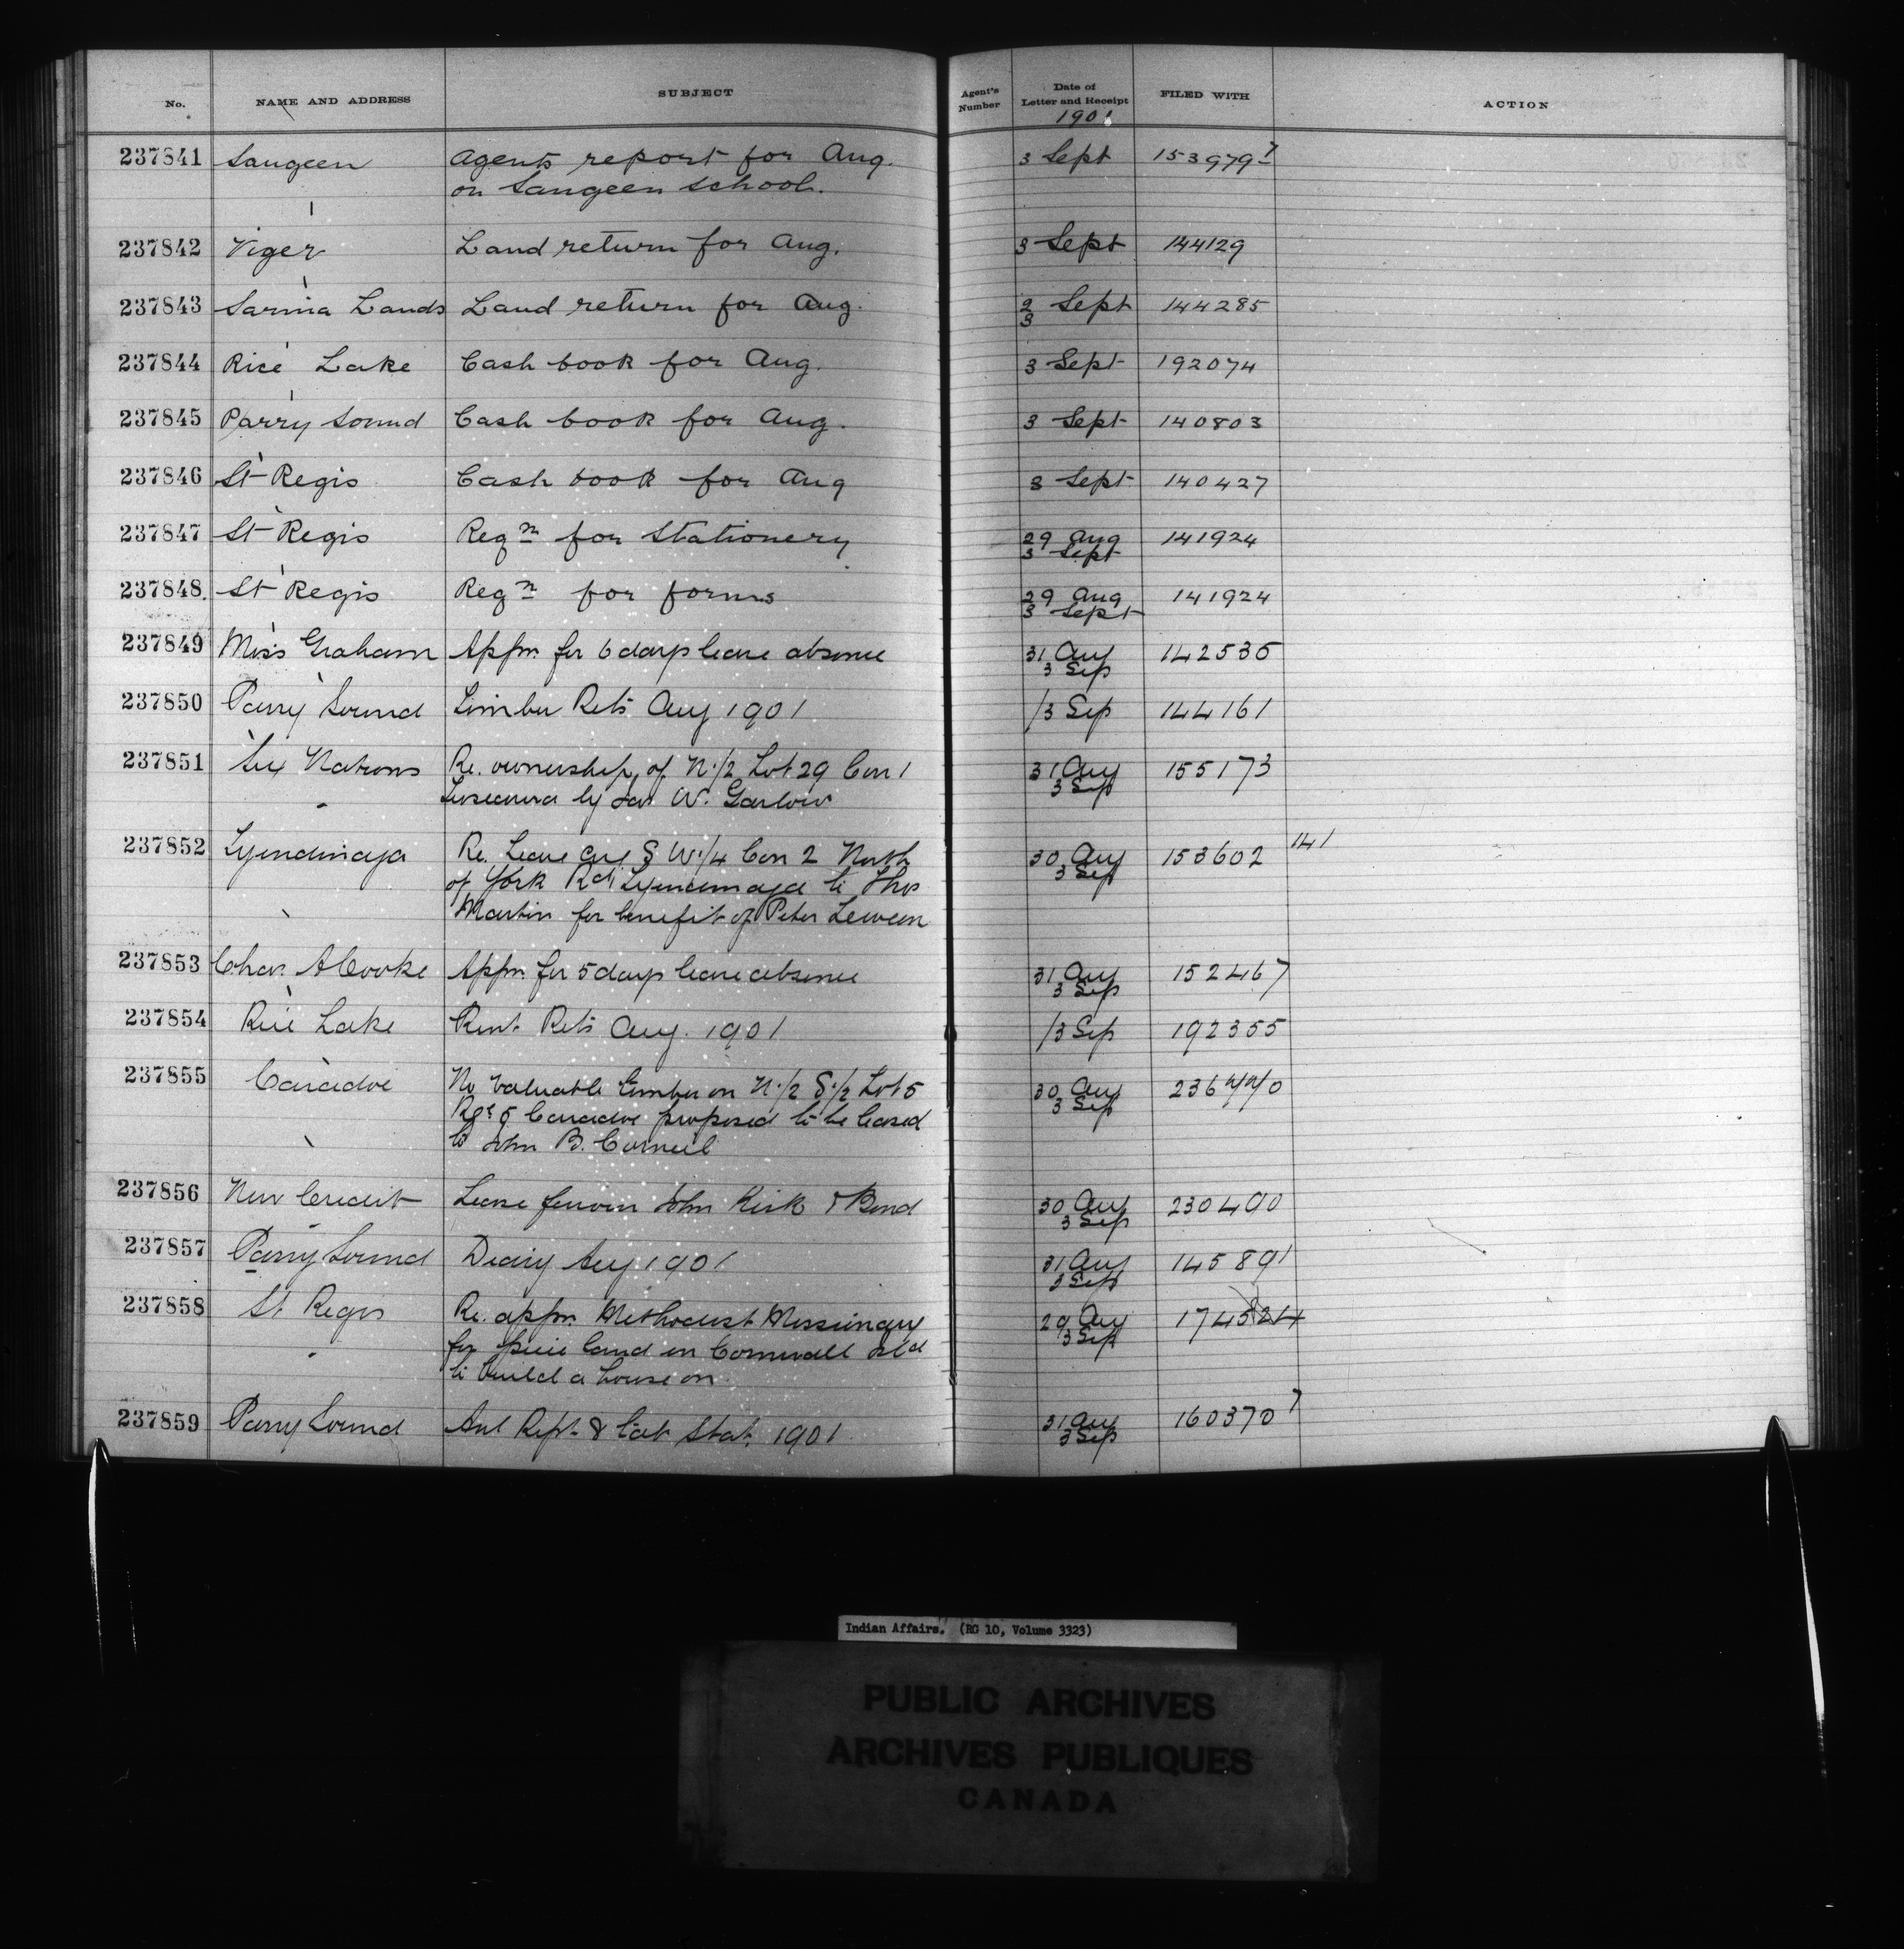 No. NAME AND ADDRESS SUBJECT Agent's Number Date of Letter and Receipt FILED WITH ACTION
1901
237841 Saugeen Agents report for Aug. 3 Sept 153979-7
on Saugeen School.
237842 Viger Land return for Aug. 3 Sept 144129
237843 Sarnia Lands Land return for Aug. 2 Sept 144285
3
237844 Rice Lake Cash book for Aug. 3 Sept 192074
237845 Parry Sound Cash book for Aug. 3 Sept 140803
237846 St Regis Cash book for Aug 3 Sept 140427
237847 St Regis Reqn for Stationery 29 Aug 141924
3 Sept
237848 St Regis Reqn for forms 29 Aug 141924
3 Sept
237849 Miss Graham Appn. for 6 days leave absence 31 Aug 142535
3 Sep
237850 Parry Sound Timber Rets Aug 1901 /3 Sep 144161
237851 Six Nations Re. ownership of N.1/2 Lot 29 Con 1 31 Aug 155173
Tuscarora by Jas W. Garlow 3 Sep
237852 Tyendinaga Re. Lease S W.1/4 Con 2 North 30 Aug 153602 141
of York Rd Tyendinaga to Thos 3 Sep
Martin for benefit of Peter
237853 Chas. A Cooke Appn. for 5 days leave absence 31 Aug 152467
3 Sep
237854 Rice Lake Rent Rets Aug. 1901 /3 Sep 192355
237855 Caradoc No valuable timber on N.1/2 S.1/2 Lot 5 30 Aug
Rge 5 Caradoc proposed to be leased 3 Sep
to John B. Corneil
237856 New Credit Lease favour John Kirk & Bond 30 Aug 230490
3 Sep
237857 Parry Sound Diary Aug 1901 31 Aug 145891
3 Sep
237858 St Regis Re. appn. Methodist Missionary 29 Aug 174524
for piece land on Cornwall Isld 3 Sep
to build a house on
237859 Parry Sound Anl Rept & Stat. 1901 31 Aug 160370 7
3 Sep
Indian Affairs. (RG 10, Volume 3323)
PUBLIC ARCHIVES
ARCHIVES PUBLIQUES
CANADA